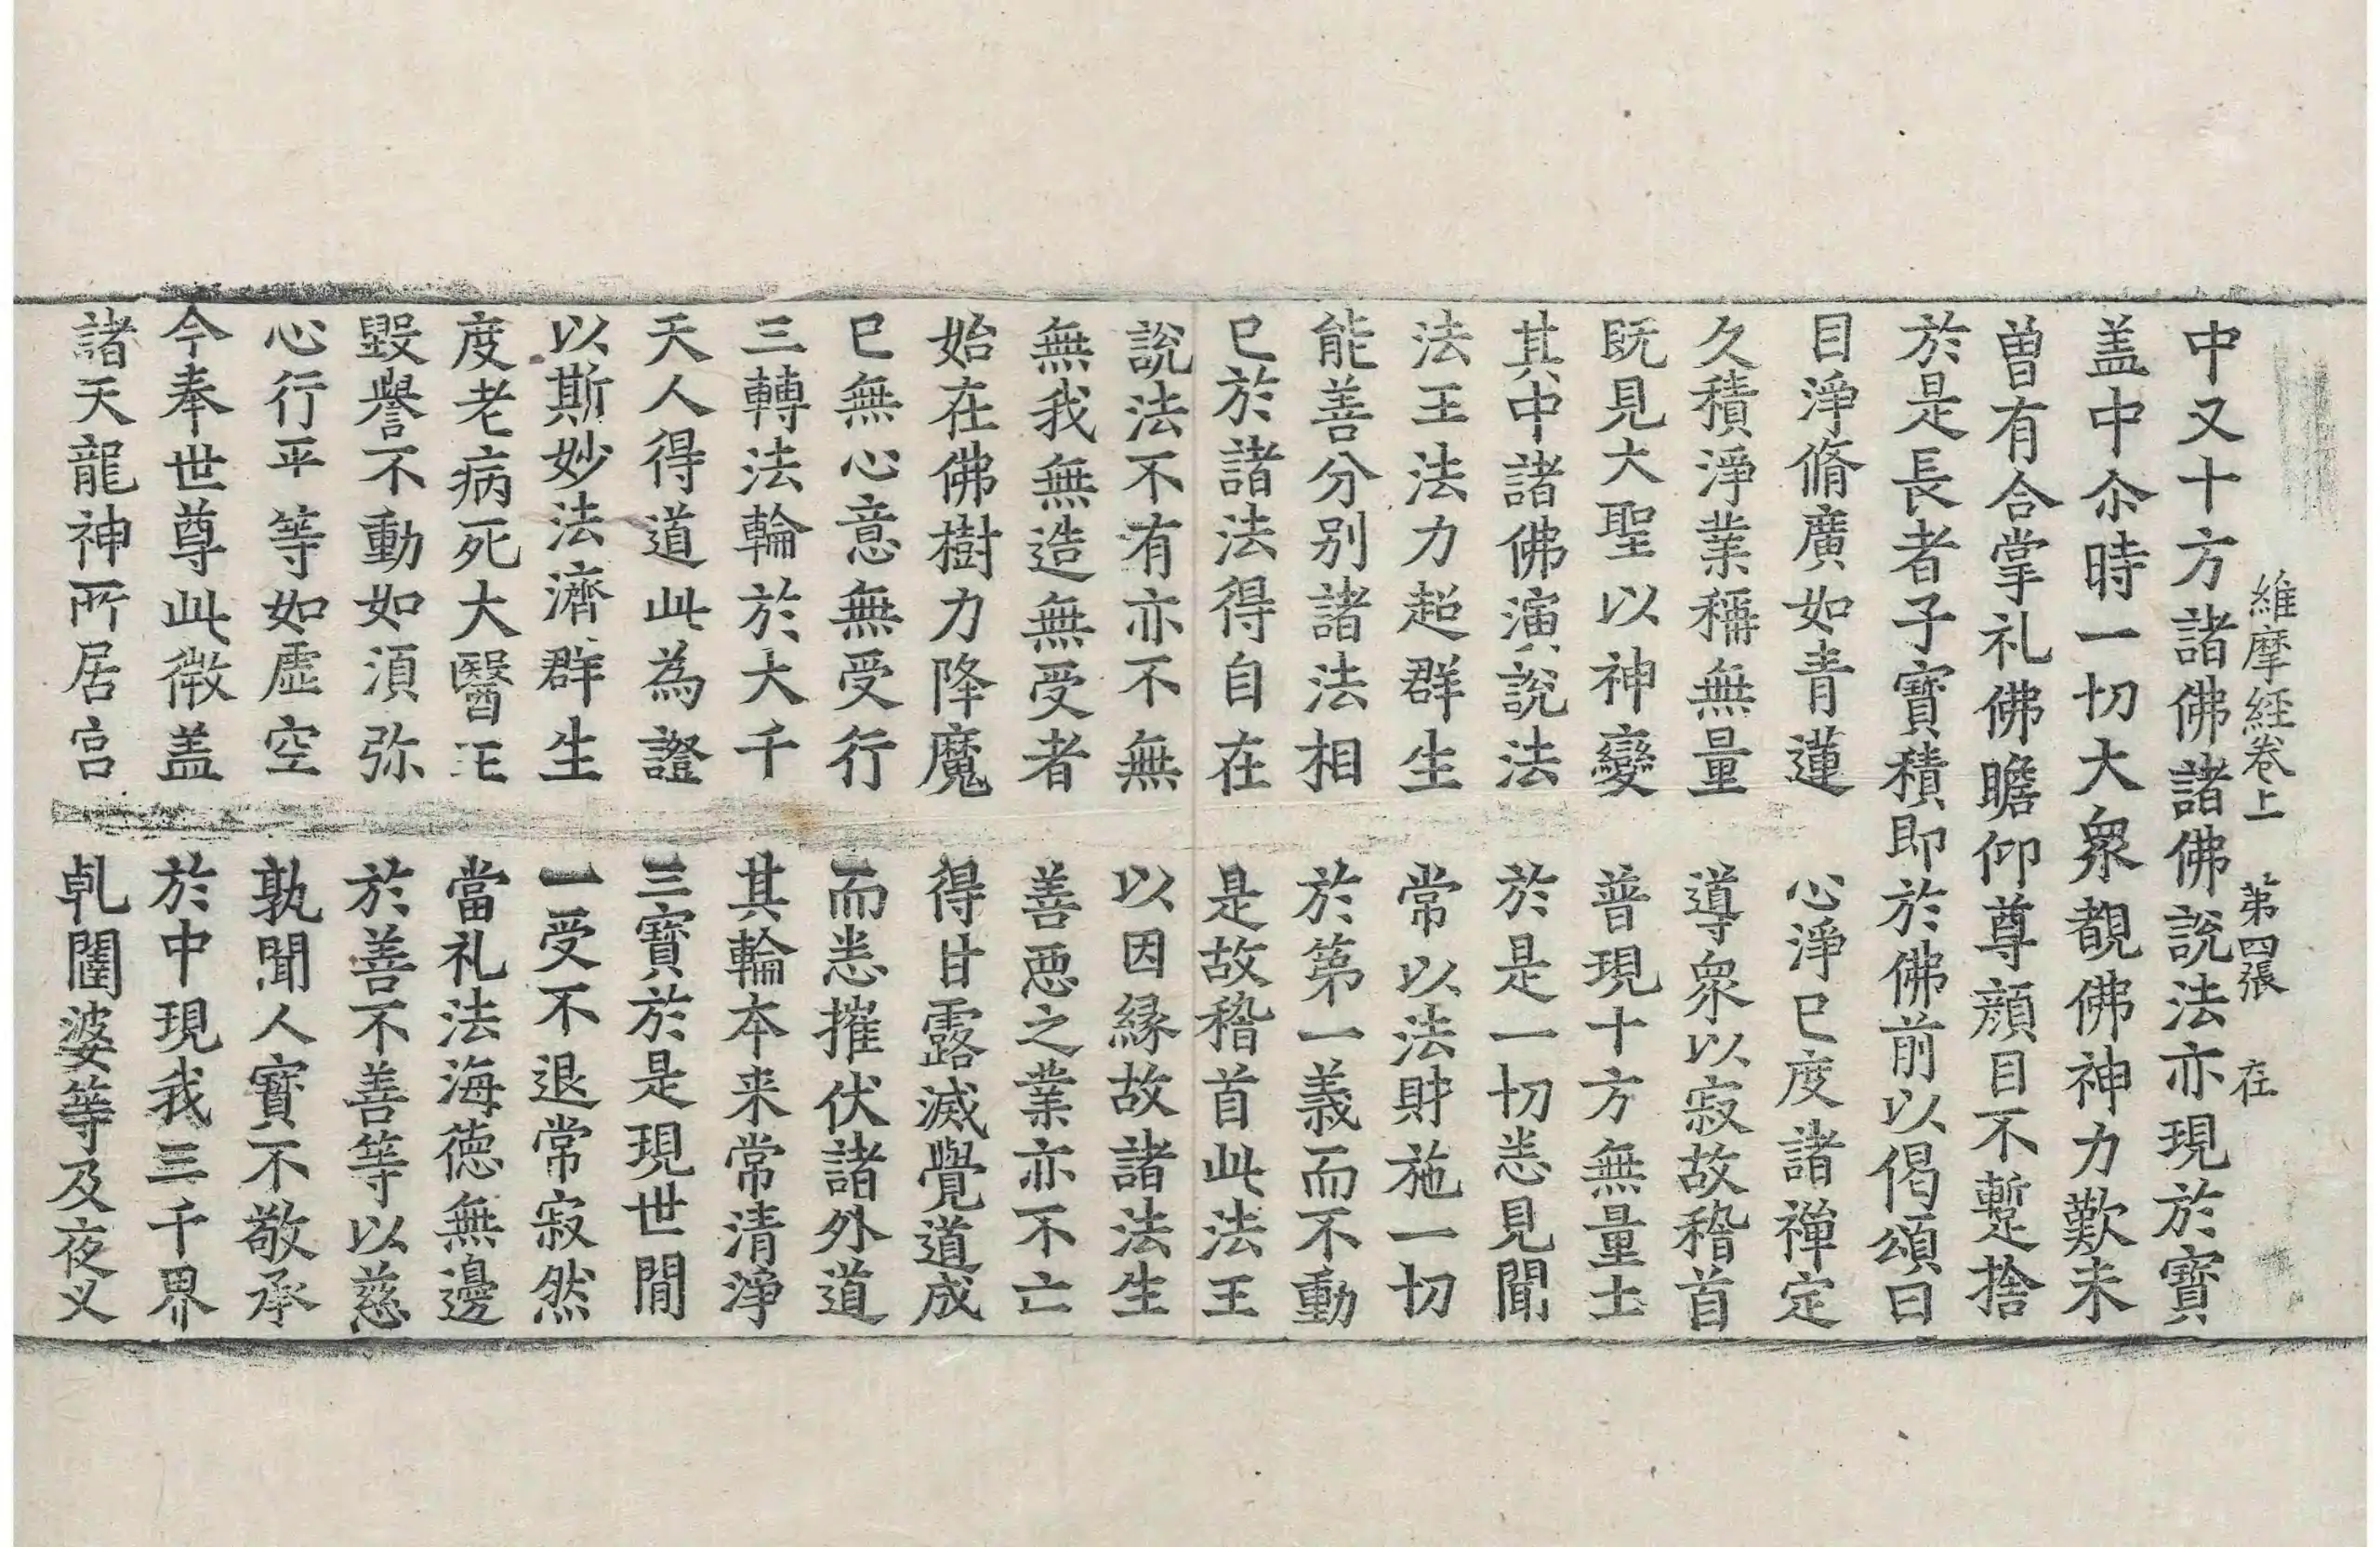 維摩経巻上 第四張 在
中又十方諸佛諸佛說法亦現於寶
盖中尒時一切大衆覩佛神力歎未
曽有合掌礼佛瞻仰尊顔目不蹔捨
於是長者子寶積即於佛前以偈頌曰
目淨脩廣如青蓮 心淨已度諸禪定
久積淨業稱無量 導衆以寂故稽首
既見大聖以神變 普現十方無量土
其中諸佛演說法 於是一切悉見聞
法王法力超群生 常以法財施一切
能善分别諸法相 於第一義而不動
已於諸法得自在 是故稽首此法王
說法不有亦不無 以因縁故諸法生
無我無造無受者 善惡之業亦不亡
始在佛樹力降魔 得甘露滅覺道成
已無心意無受行 而悉摧伏諸外道
三轉法輪於大千 其輪本来常清淨
天人得道此為證 三寶於是現世間
以斯妙法濟群生 一受不退常寂然
度老病死大醫王 當礼法海徳無邊
毀譽不動如湏弥 於善不善等以慈
心行平等如虛空 孰聞人寶不敬承
今奉世尊此微盖 於中現我三千界
諸天龍神所居宫 乹闥婆等及夜叉